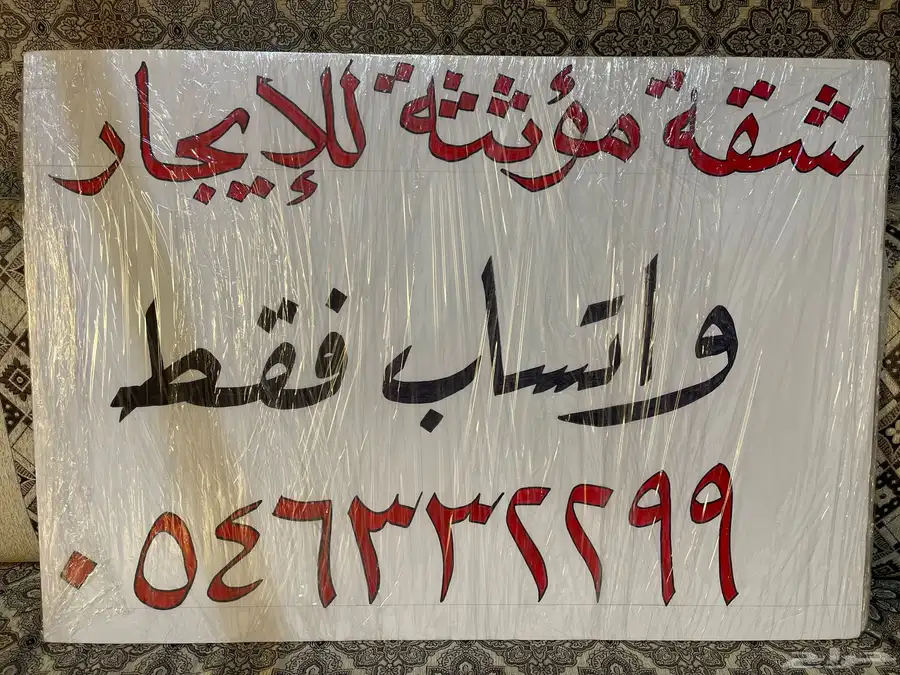 شقة مؤثثة للإيجار
واتساب فقط
٠٥٤٦٣٣٢٢٩٩
حراج